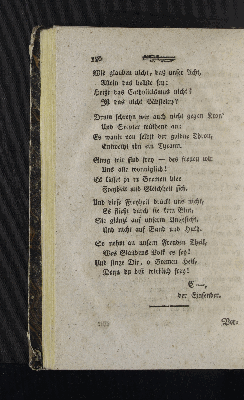 Wir glauben nicht, daß unser Licht,
Allein das hellste sey:
Heißt das Catholicismus nicht?
Ist das nicht Gleißnerey?
Drum schreyn wir auch nicht gegen Kron'
Und Scepter wüthend an:
Es wankt von selbst der goldne Thron,
Entweiht ihn ein Tyrann.
Genug wir sind frey — des freuen wir
Uns alle wonniglich!
Es küsset ja in Bremen hier
Freyheit und Gleichheit sich.
Und diese Freyheit drückt uns nicht,
Es fließt durch sie kein Blut,
Sie glänzt auf unserm Angesicht,
Und nicht auf Band und Huth.
So nehmt an unsern Freuden Theil,
Wes Glaubens Volk es sey!
Und singe Dir, o Bremen Heil,
Denn du bist wirklich frey!
C—,
der Einsender.
Vor-